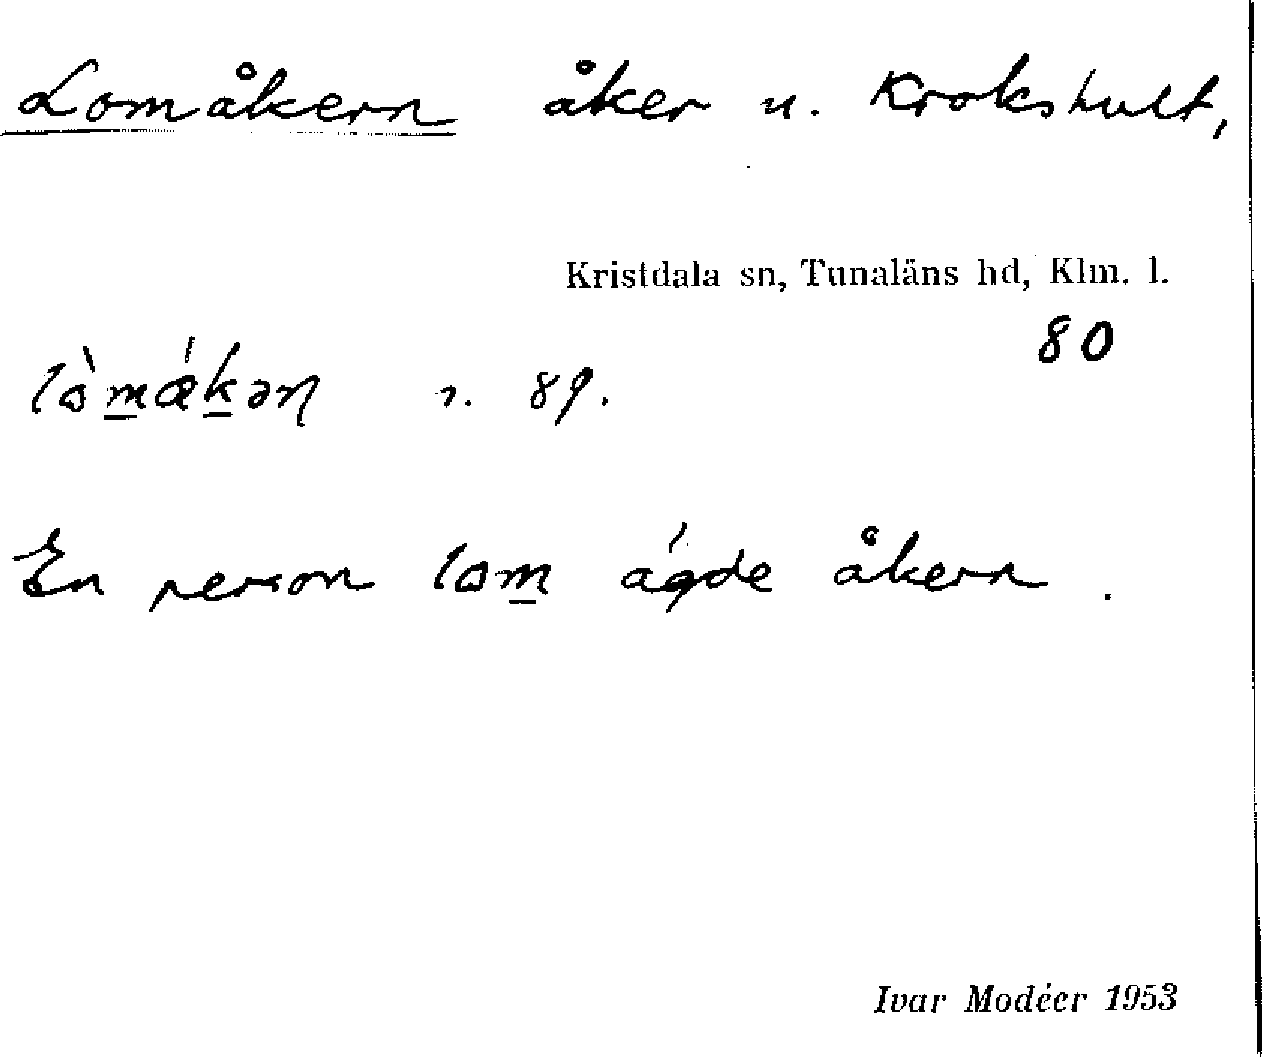 Lomåkern åker u. Krokshult,
Kristdala sn, Tunaläns hd, Klm. l.
80
89.
En person lom ägde åkern.
Ivar Modéer 1953